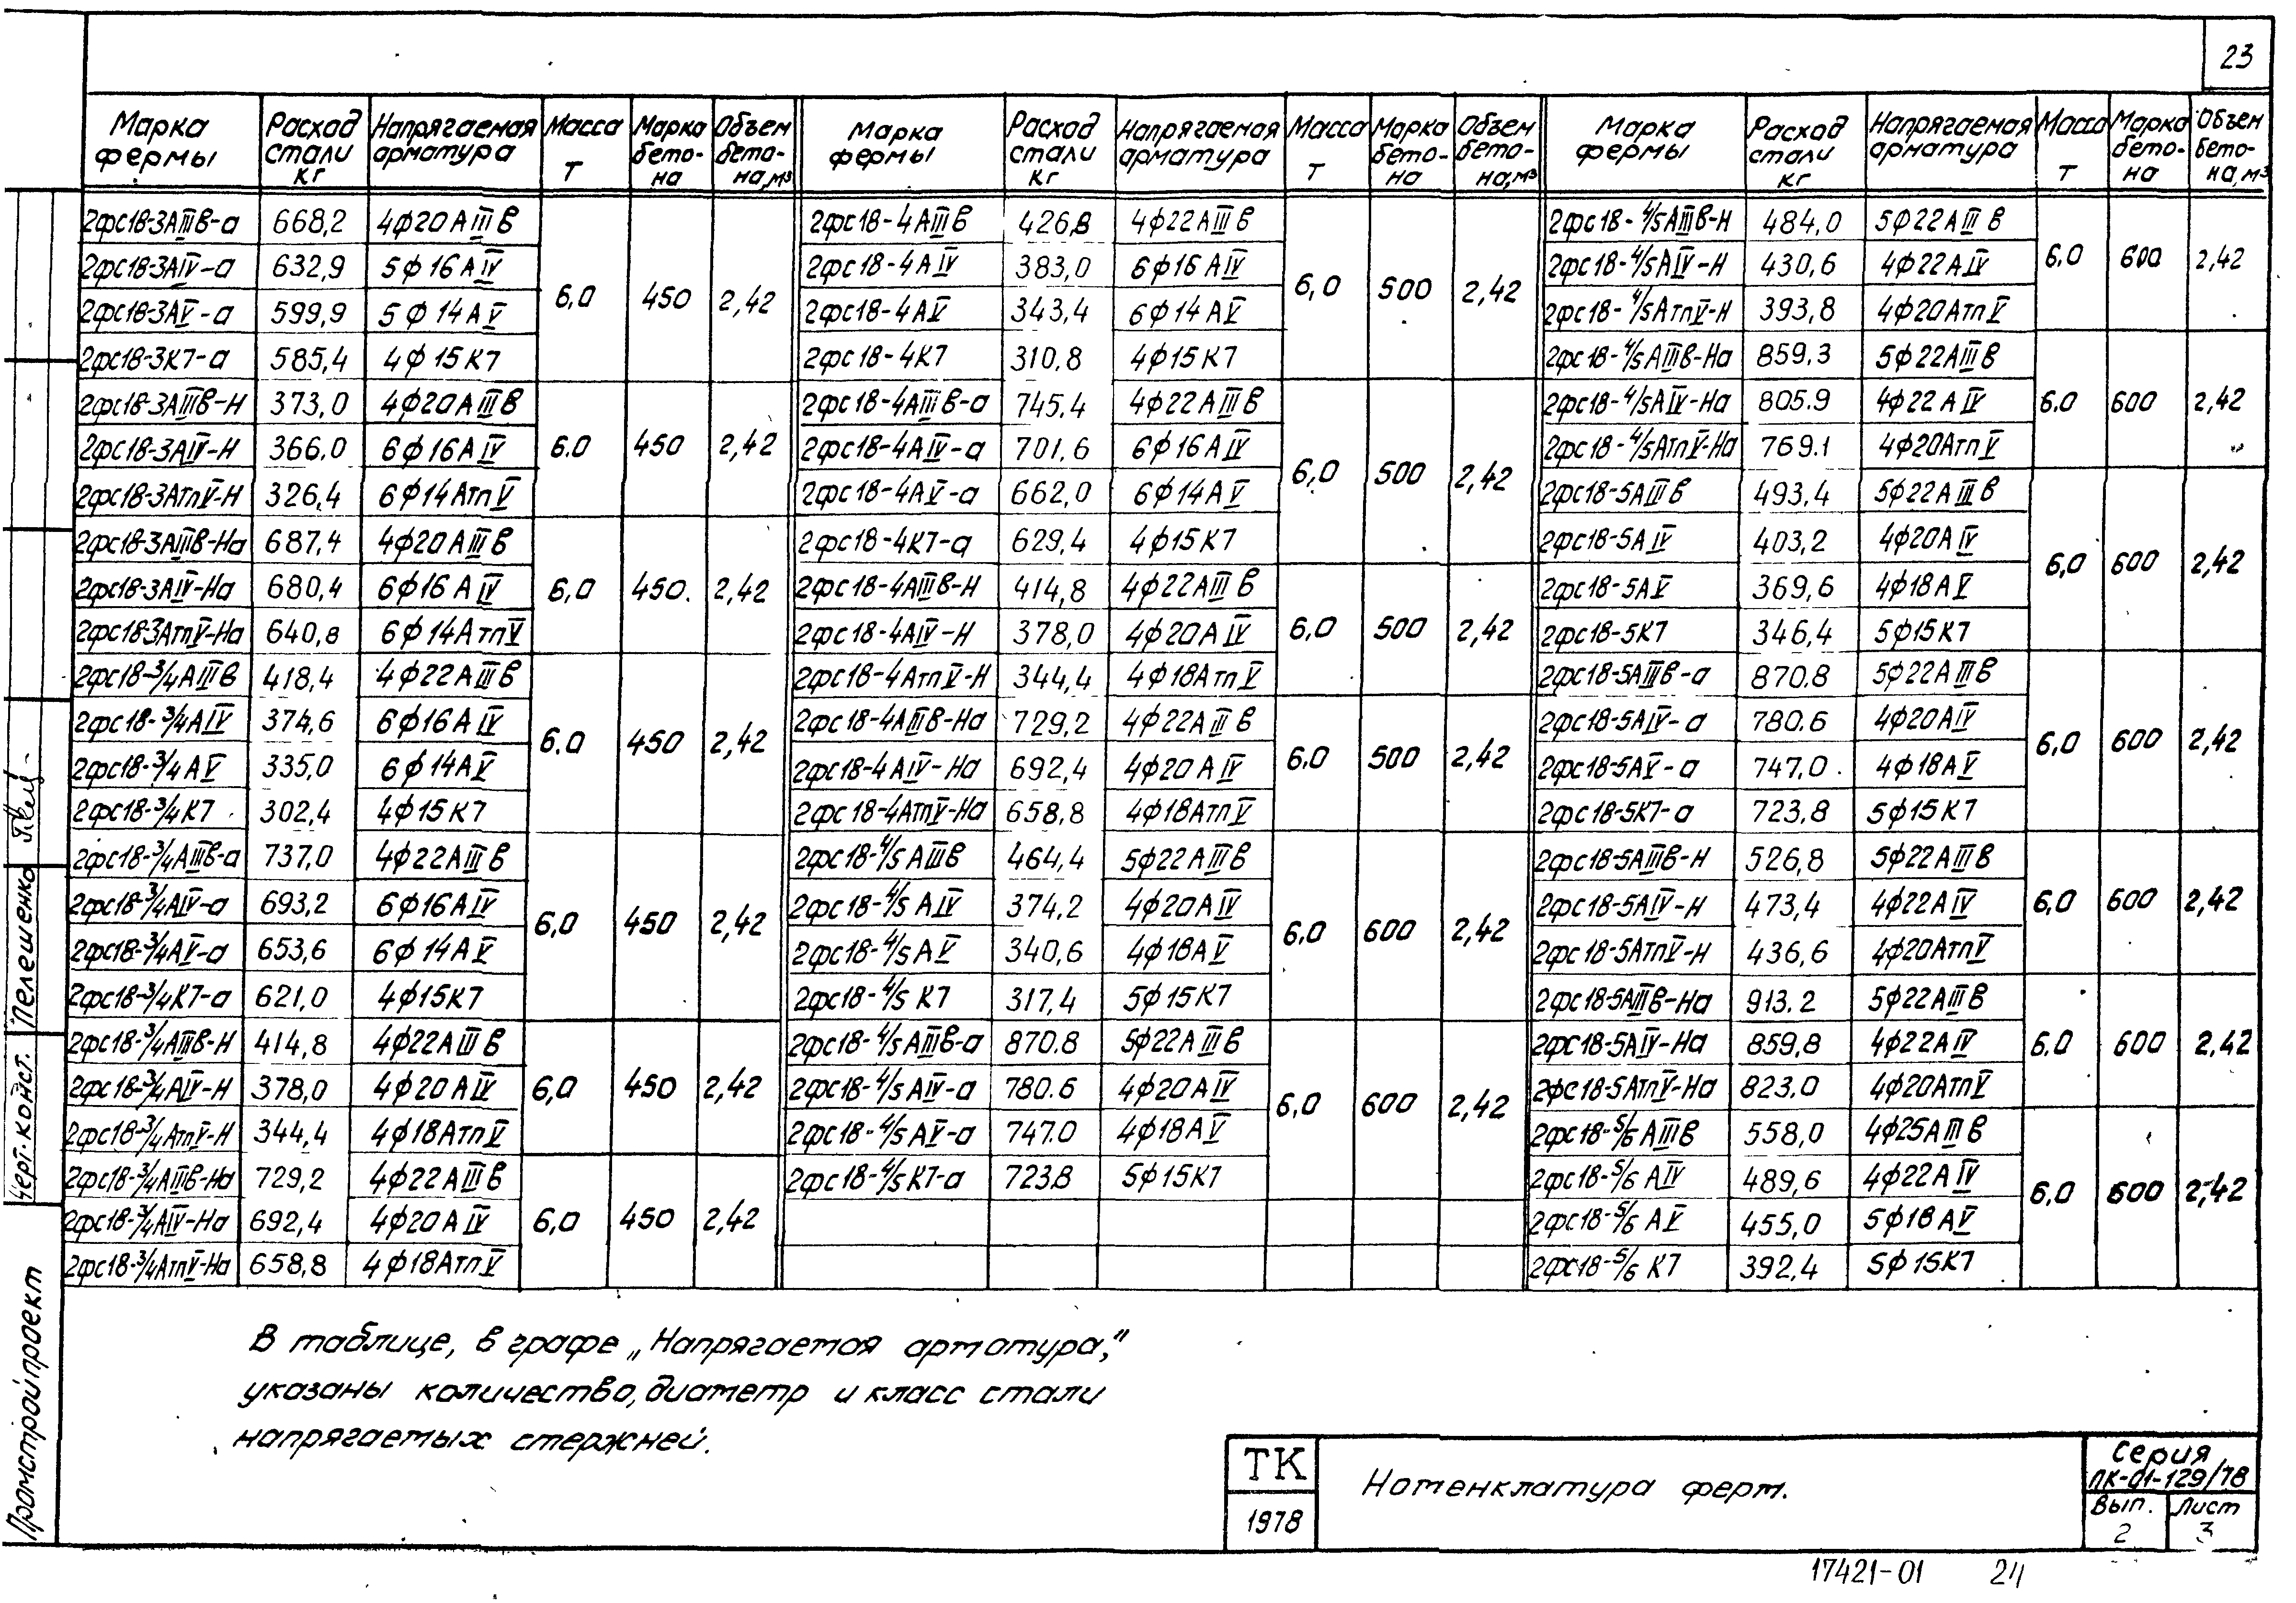 23
Марка фермы | Расход стали кг | Напрягаемая арматура | Масса т | Марка бето-на | Объем бето-на, м³ | Марка фермы | Расход стали кг | Напрягаемая арматура | Масса т | Марка бето-на | Объем бето-на, м³ | Марка фермы | Расход стали кг | Напрягаемая арматура | Масса т | Марка бето-на | Объем бето-на, м³
2фс18-3АIIIв-а 668,2 4ф20АIIIв
2фс18-3АIV-а 632,9 5ф16АIV
2фс18-3АV-а 599,9 5ф14АV
2фс18-3К7-а 585,4 4ф15К7
6,0 450 2,42
2фс18-3АIIIв-Н 373,0 4ф20АIIIв
2фс18-3АIV-Н 366,0 6ф16АIV
2фс18-3АтпV-Н 326,4 6ф14АтпV
6.0 450 2,42
2фс18-3АIIIв-На 687,4 4ф20АIIIв
2фс18-3АIV-На 680,4 6ф16АIV
2фс18-3АтпV-На 640,8 6ф14АтпV
6,0 450. 2,42
2фс18-3/4АIIIв 418,4 4ф22АIIIв
2фс18-3/4АIV 374,6 6ф16АIV
2фс18-3/4АV 335,0 6ф14АV
2фс18-3/4К7 302,4 4ф15К7
6.0 450 2,42
2фс18-3/4АIIIв-а 737,0 4ф22АIIIв
2фс18-3/4АIV-а 693,2 6ф16АIV
2фс18-3/4АV-а 653,6 6ф14АV
2фс18-3/4К7-а 621,0 4ф15К7
6,0 450 2,42
2фс18-3/4АIIIв-Н 414,8 4ф22АIIIв
2фс18-3/4АIV-Н 378,0 4ф20АIV
2фс18-3/4АтпV-Н 344,4 4ф18АтпV
6,0 450 2,42
2фс18-3/4АIIIв-На 729,2 4ф22АIIIв
2фс18-3/4АIV-На 692,4 4ф20АIV
2фс18-3/4АтпV-На 658,8 4ф18АтпV
6,0 450 2,42
2фс18-4АIIIв 426,8 4ф22АIIIв
2фс18-4АIV 383,0 6ф16АIV
2фс18-4АV 343,4 6ф14АV
2фс18-4К7 310,8 4ф15К7
6,0 500 2,42
2фс18-4АIIIв-а 745,4 4ф22АIIIв
2фс18-4АIV-а 701,6 6ф16АIV
2фс18-4АV-а 662,0 6ф14АV
2фс18-4К7-а 629,4 4ф15К7
6,0 500 2,42
2фс18-4АIIIв-Н 414,8 4ф22АIIIв
2фс18-4АIV-Н 378,0 4ф20АIV
2фс18-4АтпV-Н 344,4 4ф18АтпV
6,0 500 2,42
2фс18-4АIIIв-На 729,2 4ф22АIIIв
2фс18-4АIV-На 692,4 4ф20АIV
2фс18-4АтпV-На 658,8 4ф18АтпV
6,0 500 2,42
2фс18-4/5АIIIв 464,4 5ф22АIIIв
2фс18-4/5АIV 374,2 4ф20АIV
2фс18-4/5АV 340,6 4ф18АV
2фс18-4/5К7 317,4 5ф15К7
6,0 600 2,42
2фс18-4/5АIIIв-а 870.8 5ф22АIIIв
2фс18-4/5АIV-а 780.6 4ф20АIV
2фс18-4/5АV-а 747.0 4ф18АV
2фс18-4/5К7-а 723.8 5ф15К7
6,0 600 2,42
2фс18-4/5АIIIв-Н 484,0 5ф22АIIIв
2фс18-4/5АIV-Н 430,6 4ф22АIV
2фс18-4/5АтпV-Н 393,8 4ф20АтпV
6,0 600 2,42
2фс18-4/5АIIIв-На 859.3 5ф22АIIIв
2фс18-4/5АIV-На 805.9 4ф22АIV
2фс18-4/5АтпV-На 769.1 4ф20АтпV
6.0 600 2,42
2фс18-5АIIIв 493,4 5ф22АIIIв
2фс18-5АIV 403,2 4ф20АIV
2фс18-5АV 369,6 4ф18АV
2фс18-5К7 346,4 5ф15К7
6,0 600 2,42
2фс18-5АIIIв-а 870.8 5ф22АIIIв
2фс18-5АIV-а 780.6 4ф20АIV
2фс18-5АV-а 747.0 4ф18АV
2фс18-5К7-а 723,8 5ф15К7
6,0 600 2,42
2фс18-5АIIIв-Н 526,8 5ф22АIIIв
2фс18-5АIV-Н 473,4 4ф22АIV
2фс18-5АтпV-Н 436,6 4ф20АтпV
6,0 600 2,42
2фс18-5АIIIв-На 913.2 5ф22АIIIв
2фс18-5АIV-На 859,8 4ф22АIV
2фс18-5АтпV-На 823.0 4ф20АтпV
6,0 600 2,42
2фс18-5/6АIIIв 558,0 4ф25АIIIв
2фс18-5/6АIV 489,6 4ф22АIV
2фс18-5/6АV 455,0 5ф18АV
2фс18-5/6К7 392,4 5ф15К7
6,0 600 2,42
В таблице, в графе „Напрягаемая арматура,"
указаны количество, диаметр и класс стали
напрягаемых стержней.
ТК
1978
Номенклатура ферм.
серия
ПК-01-129/78
Вып.
2
Лист
3
17421-01 24
Промстройпроект
Черт. конст. Пелешенко